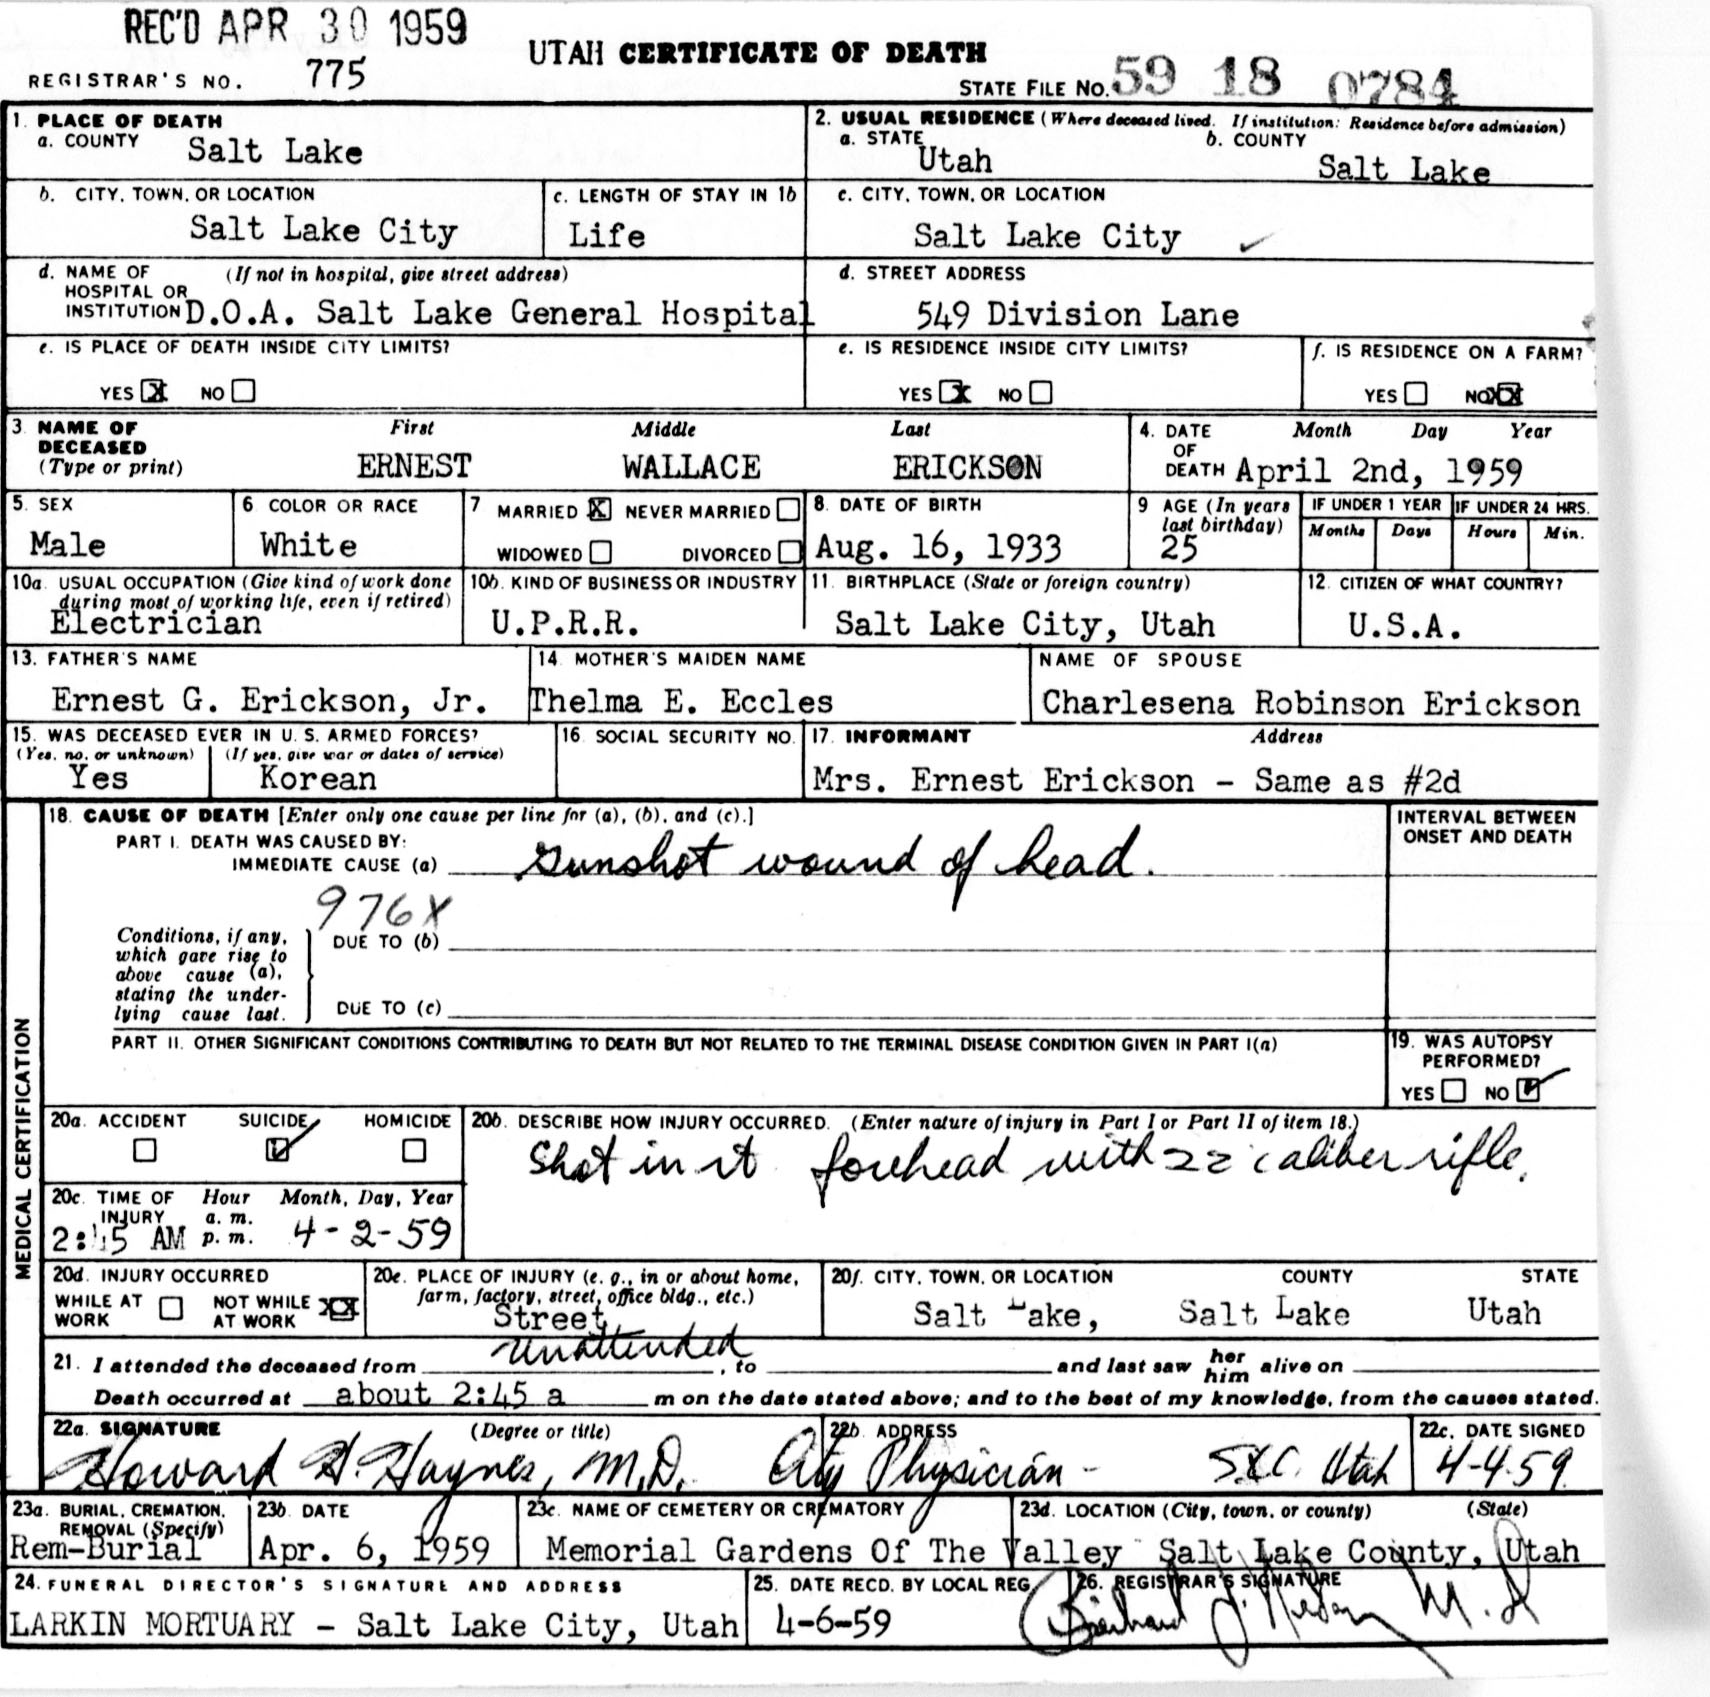 REC'D APR 30 1959
UTAH CERTIFICATE OF DEATH
REGISTRAR'S NO. 775
STATE FILE NO. 59 18 0784
1. PLACE OF DEATH
a. COUNTY Salt Lake
2. USUAL RESIDENCE (Where deceased lived. If institution: Residence before admission)
a. STATE Utah b. COUNTY Salt Lake
b. CITY, TOWN, OR LOCATION Salt Lake City
c. LENGTH OF STAY IN 1b Life
c. CITY, TOWN, OR LOCATION Salt Lake City
d. NAME OF (If not in hospital, give street address)
HOSPITAL OR
INSTITUTION D.O.A. Salt Lake General Hospital
d. STREET ADDRESS
549 Division Lane
e. IS PLACE OF DEATH INSIDE CITY LIMITS?
YES X NO
e. IS RESIDENCE INSIDE CITY LIMITS?
YES X NO
f. IS RESIDENCE ON A FARM?
YES NO XX
3. NAME OF DECEASED (Type or print)
First Middle Last
ERNEST WALLACE ERICKSON
4. DATE OF DEATH Month Day Year
April 2nd, 1959
5. SEX
Male
6. COLOR OR RACE
White
7 MARRIED X NEVER MARRIED
WIDOWED DIVORCED
8. DATE OF BIRTH
Aug. 16, 1933
9 AGE (In years last birthday)
25
IF UNDER 1 YEAR IF UNDER 24 HRS.
Months Days Hours Min.
10a. USUAL OCCUPATION (Give kind of work done
during most of working life, even if retired)
Electrician
10b. KIND OF BUSINESS OR INDUSTRY
U.P.R.R.
11. BIRTHPLACE (State or foreign country)
Salt Lake City, Utah
12. CITIZEN OF WHAT COUNTRY?
U.S.A.
13. FATHER'S NAME
Ernest G. Erickson, Jr.
14. MOTHER'S MAIDEN NAME
Thelma E. Eccles
NAME OF SPOUSE
Charlesena Robinson Erickson
15. WAS DECEASED EVER IN U. S. ARMED FORCES?
(Yes, no, or unknown) (If yes, give war or dates of service)
Yes Korean
16. SOCIAL SECURITY NO.
17. INFORMANT Address
Mrs. Ernest Erickson - Same as #2d
MEDICAL CERTIFICATION
18. CAUSE OF DEATH [Enter only one cause per line for (a), (b), and (c).]
PART I. DEATH WAS CAUSED BY:
IMMEDIATE CAUSE (a) Gunshot wound of head.
INTERVAL BETWEEN
ONSET AND DEATH
976X
Conditions, if any,
which gave rise to
above cause (a),
stating the under-
lying cause last.
DUE TO (b)
DUE TO (c)
PART II. OTHER SIGNIFICANT CONDITIONS CONTRIBUTING TO DEATH BUT NOT RELATED TO THE TERMINAL DISEASE CONDITION GIVEN IN PART I(a)
19. WAS AUTOPSY
PERFORMED?
YES NO
20a. ACCIDENT SUICIDE HOMICIDE
20b. DESCRIBE HOW INJURY OCCURRED. (Enter nature of injury in Part I or Part II of item 18.)
Shot in rt forehead with 22 caliber rifle.
20c. TIME OF INJURY Hour a. m. p. m. Month, Day, Year
2:45 AM 4-2-59
20d. INJURY OCCURRED
WHILE AT WORK NOT WHILE AT WORK XX
20e. PLACE OF INJURY (e. g., in or about home,
farm, factory, street, office bldg., etc.)
Street
20f. CITY, TOWN, OR LOCATION COUNTY STATE
Salt Lake, Salt Lake Utah
21. I attended the deceased from Unattended, to and last saw her him alive on
Death occurred at about 2:45 a m on the date stated above; and to the best of my knowledge, from the causes stated.
22a. SIGNATURE (Degree or title)
22b. ADDRESS
22c. DATE SIGNED
Howard H. Haynes, M.D. City Physician - S.L.C. Utah 4-4-59.
23a. BURIAL, CREMATION,
REMOVAL (Specify)
Rem-Burial
23b. DATE
Apr. 6, 1959
23c. NAME OF CEMETERY OR CREMATORY
Memorial Gardens Of The Valley
23d. LOCATION (City, town, or county) (State)
Salt Lake County, Utah
24. FUNERAL DIRECTOR'S SIGNATURE AND ADDRESS
LARKIN MORTUARY - Salt Lake City, Utah
25. DATE RECD. BY LOCAL REG.
4-6-59
26. REGISTRAR'S SIGNATURE